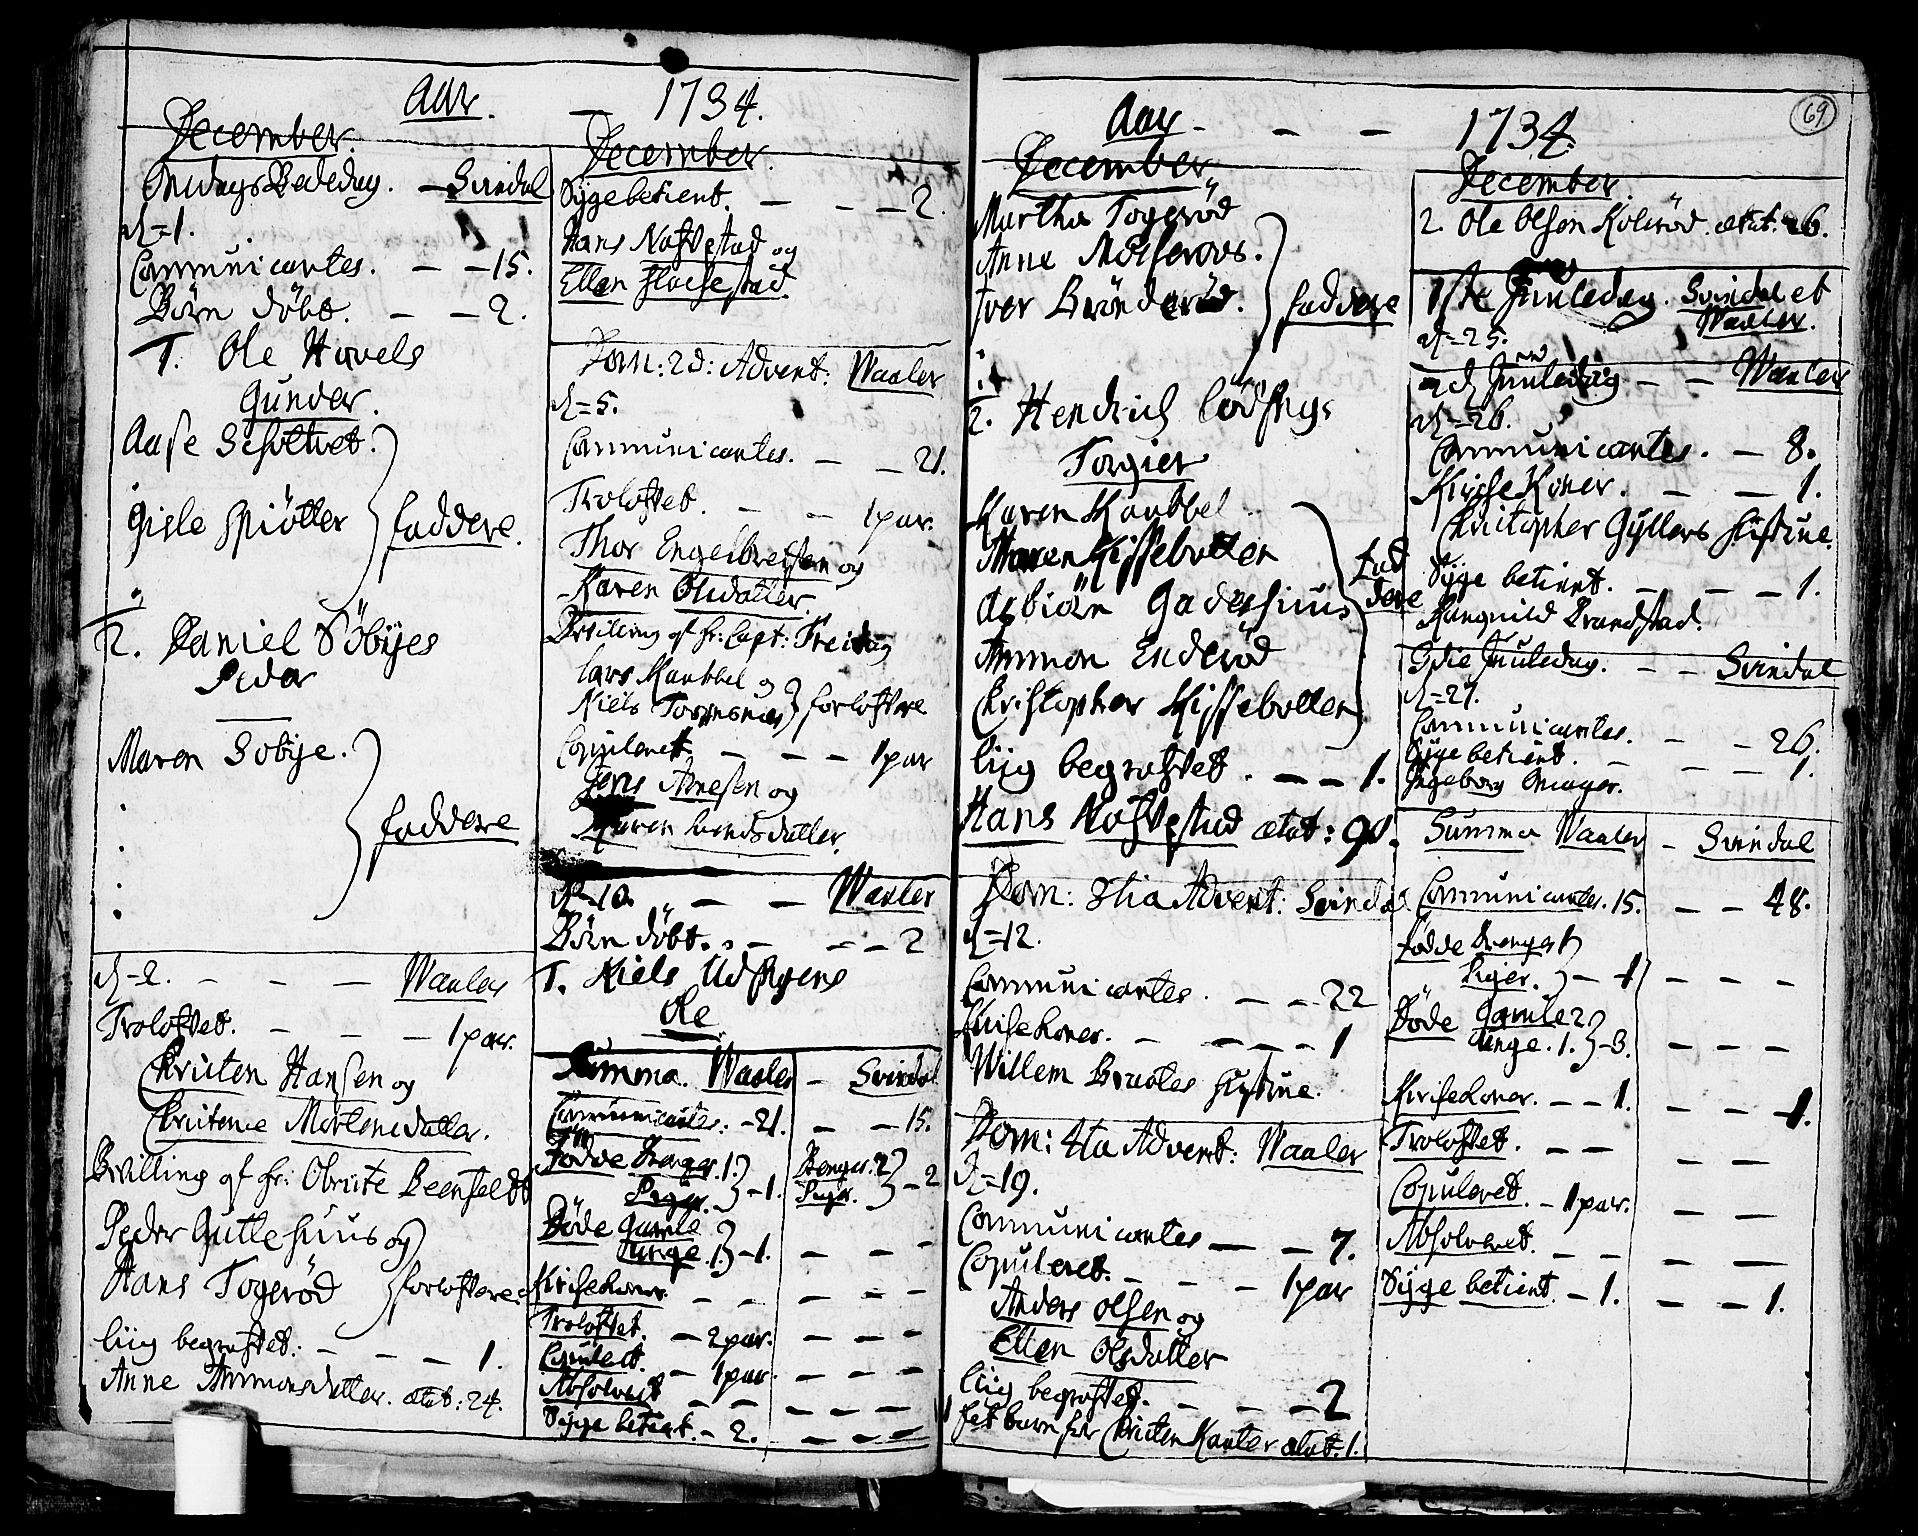 Aar. - 1734.
December.
Onsdags Bededag. - Svindal
d = 1.
Communicantes. - - 15.
Børn døbt. - - 2.
1. Ole Hovels
Gunder.
Aase
Gisle
faddere.
2. Daniel Söbyes
Peder
Maren Sobye.
faddere
d = 2. - - - Waaler
Trolofvet. - - - 1 par.
Christen Hansen og
Christence Mortensdatter.
Bevilling af hr: Obriste
Peder Guttehuus og
Hans Togerød
forlofvere.
liig begrafvet. - - - 1.
Anne Ammonsdatter. ætat: 24.
December.
Syge betient. - - - 2.
Hans Nafvestad og
Ellen
Dom: 2d: Advent: Waaler
d = 5.
Communicantes. - - 21.
Trolofvet. - - 1 par.
Thor Engelbretsen og
Karen Olsdatter.
Bevilling af hr: Capt: Freitag
Lars Kaabbel og
Niels
forlofvere
Copuleret - - - 1 par
Jens Arnesen og
Maren
d = 10. - - Waaler
Børn døbt. - - - 2
1. Niels
Ole
Summa. Waaler - Svindal
Communicantes: - 21. - - 15.
Fødde Drenge. 1. Drenge. 2
Piger. - 1. Piger. - 2
Døde gamle
Unge. 1. - 1. - - -
Kirkekoner. - - - - -
Trolofvet. - 2 par. - - -
Copulert. - 1 par. - - -
Absolveret - - - - -
Syge betient. - 2. - - -
Aar - - - 1734.
69
December
Martha Togerød
Anne
Iver
faddere
2. Hendrich
Torgier
Karen Kaabbel
Maren Kissebotten
Asbiørn
Ammon Enderød
Christopher Kissebotten
Fad
dere
liig begrafvet. - - 1.
Hans Nafvestad ætat: 90.
Dom: 3tia Advent: Svindal
d = 12.
Communicantes. - - 22
Kirkekoner. - - - - 1
Willem
Dom: 4ta Advent: Waaler
d = 19.
Communicantes - - 7.
Copuleret. - - - 1 par
Anders Olsen og
Ellen Olsdatter
liig begrafvet. - - - 2
1 et barn for Christen ætat: 1.
December.
2. Ole Olsen Kolerød. ætat: 26.
1ste Juuledag. Svindal et
Waaler.
d = 25.
2d Juuledag - - Waaler
d = 26.
Communicantes. - 8.
Kirkekoner. - - 1.
Christopher Gyllers Hustrue.
Syge betient. - - - 1.
Ranguild
3die Juuledag. - - Svindal
d = 27.
Communicantes. - - 26.
Syge betient. - - - 1.
Ingeborg
Summa Waaler - Svindal
Communicantes. 15. - - 48.
Fødde Drenge 1
Piger. - 1 - - -
Døde Gamle 2
Unge. 1. - 3. - - -
Kirkekoner. - - 1. - - 1.
Trolofvet. - - - -
Copuleret. - 1 par. - -
Absolveret. - - - -
Syge betient. - 1. - - 1.